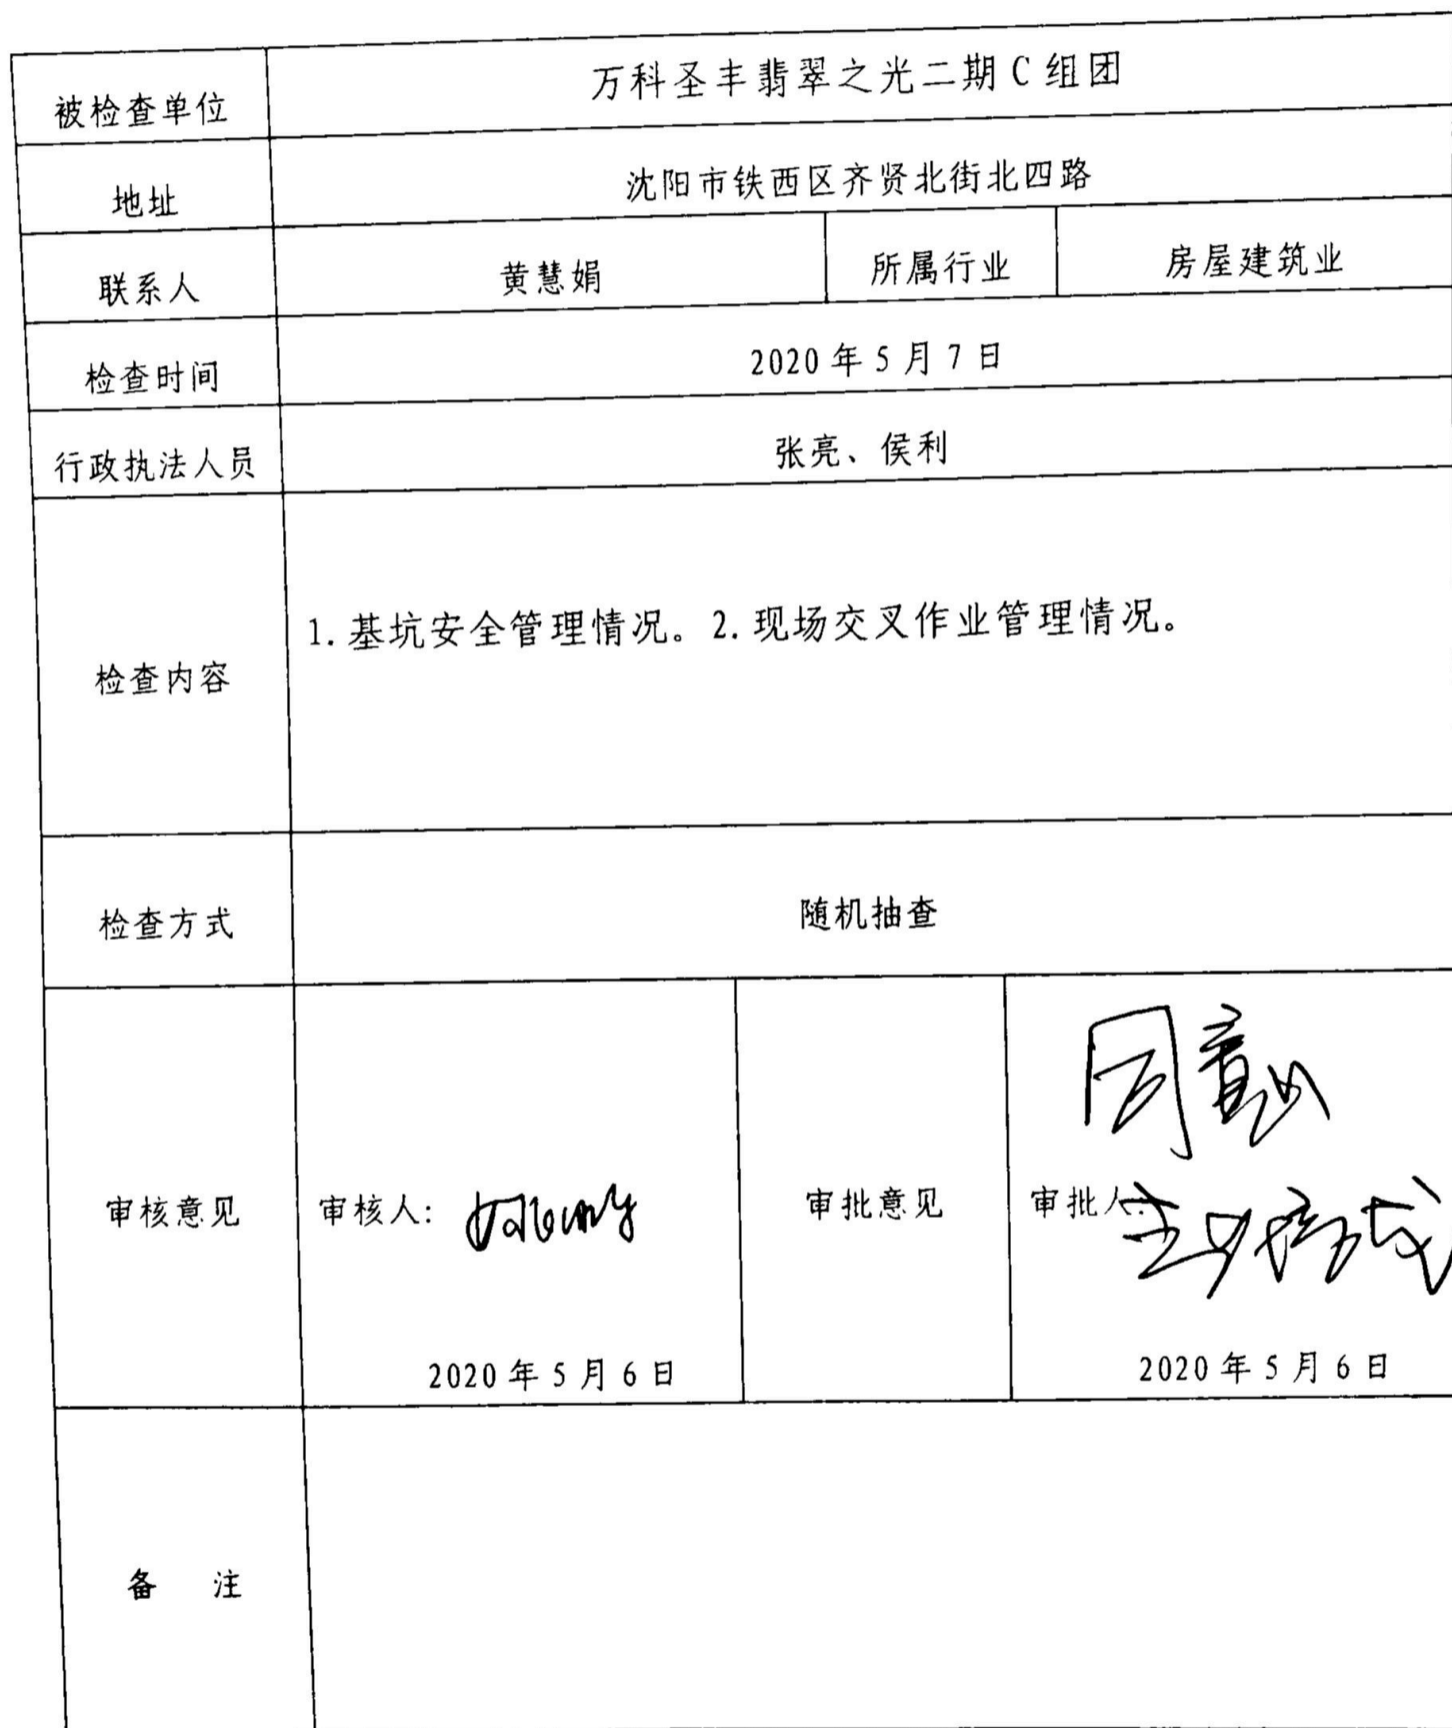 被检查单位 万科圣丰翡翠之光二期C组团
地址 沈阳市铁西区齐贤北街北四路
联系人 黄慧娟 所属行业 房屋建筑业
检查时间 2020年5月7日
行政执法人员 张亮、侯利
检查内容 1.基坑安全管理情况。2.现场交叉作业管理情况。
检查方式 随机抽查
同意
审核意见 审核人: 审批意见 审批人:
2020年5月6日 2020年5月6日
备 注